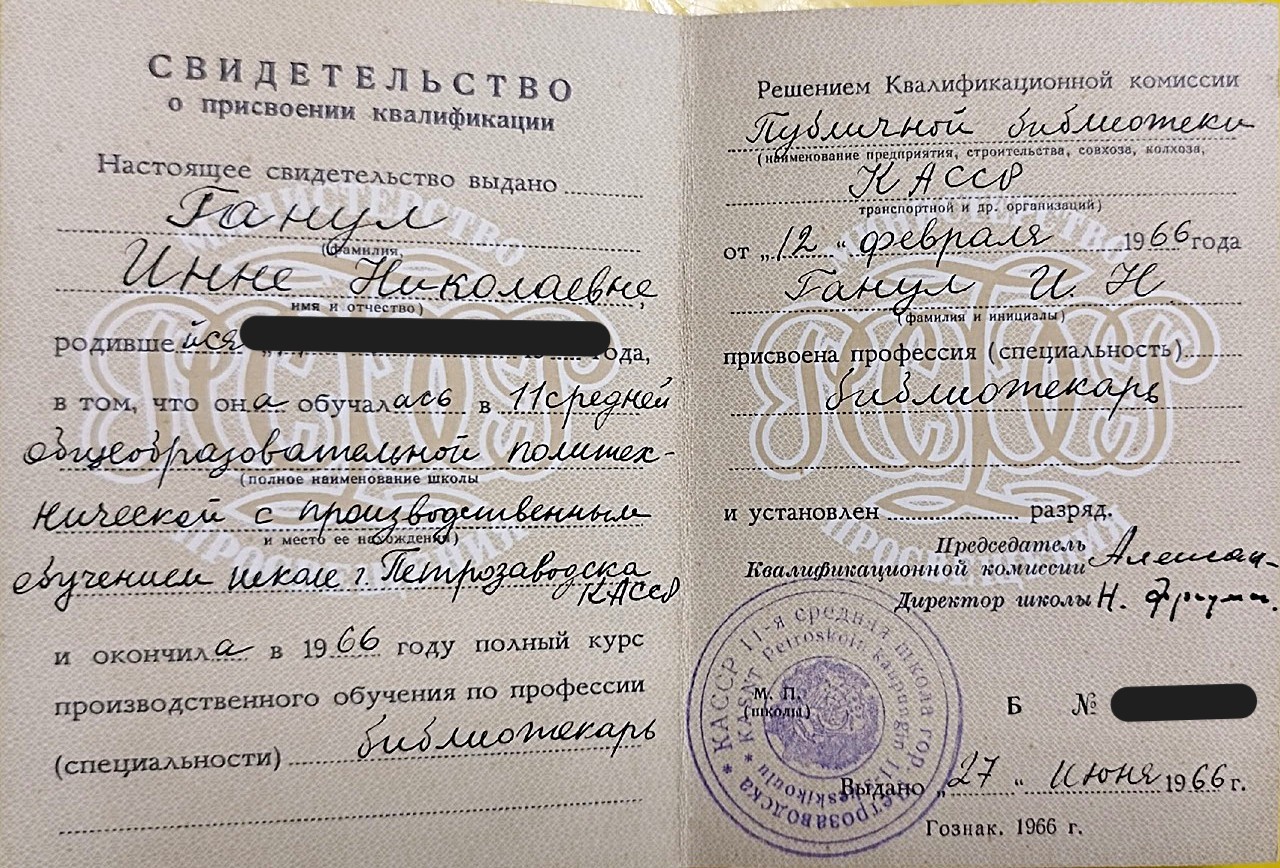 СВИДЕТЕЛЬСТВО
о присвоении квалификации
Настоящее свидетельство выдано
Ганул
(фамилия,
Инне Николаевне,
имя и отчество)
родившейся года,
в том, что она обучалась в 11 средней
общеобразовательной политех-
(полное наименование школы
нической с производственным
и место ее нахождения)
обучением школе г. Петрозаводска
КАССР
и окончила в 1966 году полный курс
производственного обучения по профессии
(специальности) библиотекарь
Решением Квалификационной комиссии
Публичной библиотеки
(наименование предприятия, строительства, совхоза, колхоза,
КАССР
транспортной и др. организаций)
от „12“ февраля 1966 года
Ганул И. Н
(фамилия и инициалы)
присвоена профессия (специальность)
библиотекарь
и установлен разряд.
Председатель
Квалификационной комиссии
Директор школы Н.
КАССР 11-я средняя школа гор. Петрозаводска
KASNT Petroskoin kaupungin 11. keskikoulu
М. П.
(школы)
Б №
Выдано „27“ июня 1966 г.
Гознак. 1966 г.